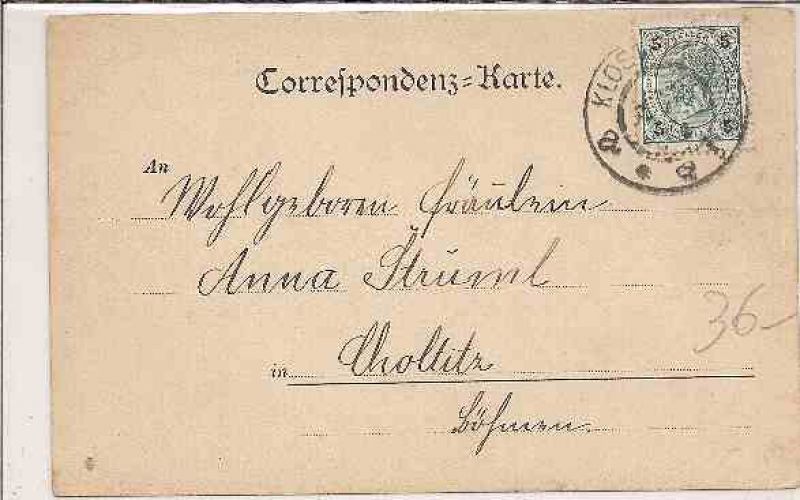 Correspondenz-Karte.
5 5
KLOS
5 5
An Wohlgeboren Fräulein
Anna Štruml
36-
in Choltitz
Böhmen.